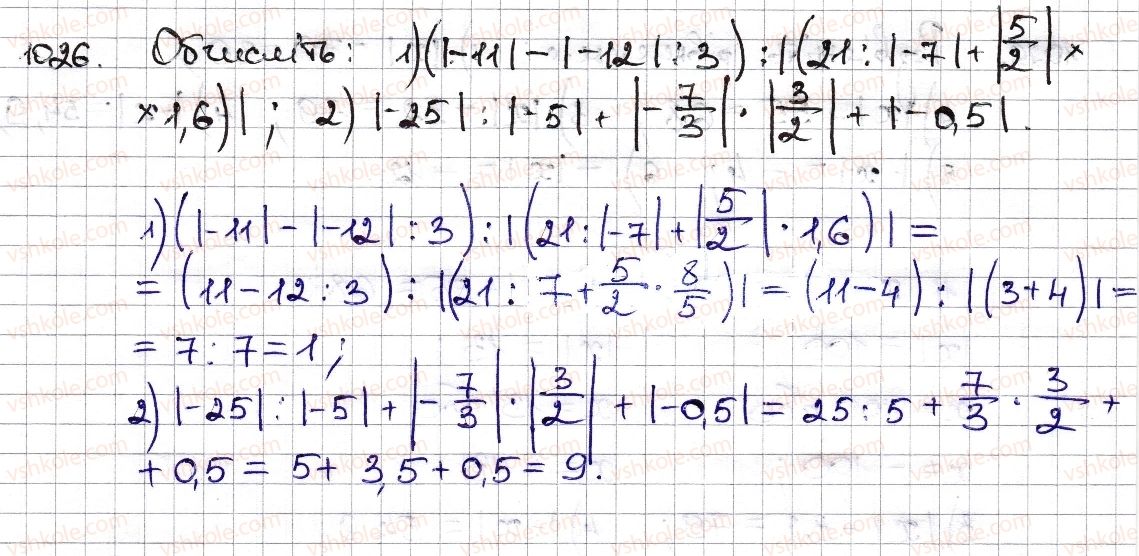 1026. Обчисліть: 1) (|-11| - |-12| : 3) : |(21 : |-7| + |5/2| ×
× 1,6)|; 2) |-25| : |-5| + |-7/3| · |3/2| + |-0,5|.
1) (|-11| - |-12| : 3) : |(21 : |-7| + |5/2| · 1,6)| =
= (11 - 12 : 3) : |(21 : 7 + 5/2 · 8/5)| = (11 - 4) : |(3 + 4)| =
= 7 : 7 = 1;
2) |-25| : |-5| + |-7/3| · |3/2| + |-0,5| = 25 : 5 + 7/3 · 3/2 +
+ 0,5 = 5 + 3,5 + 0,5 = 9.